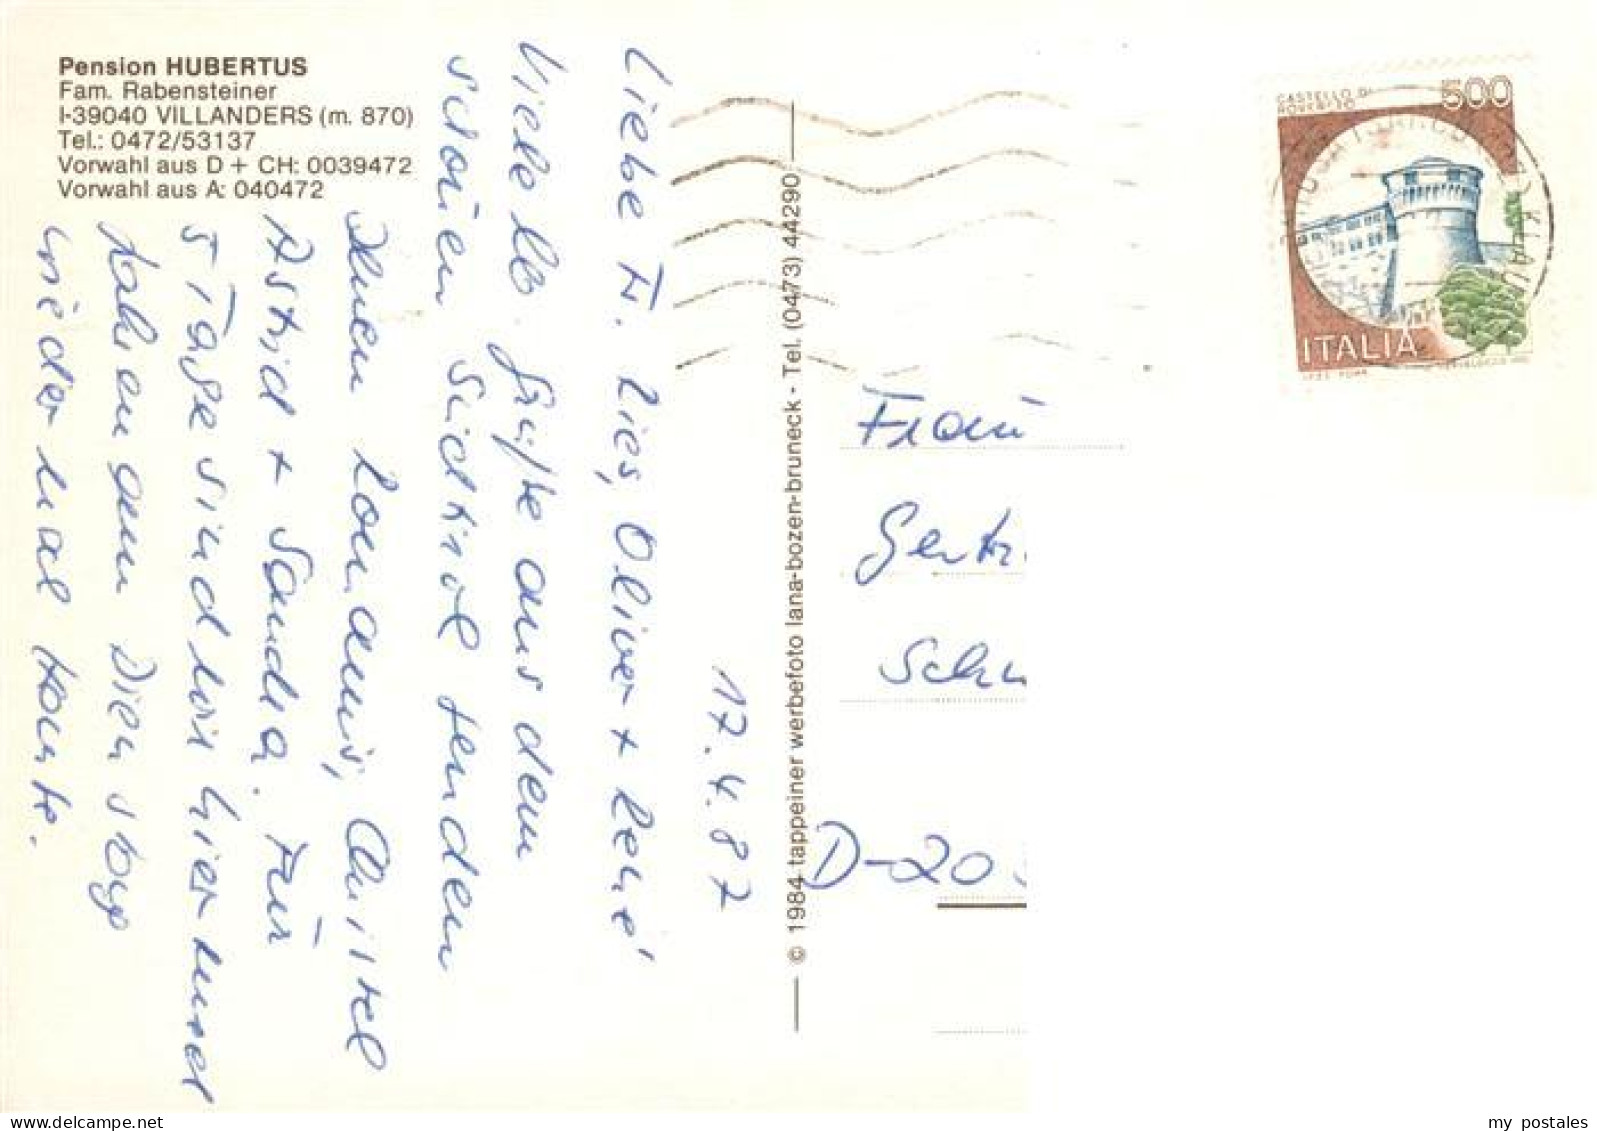 Pension HUBERTUS
Fam. Rabensteiner
I-39040 VILLANDERS (m. 870)
Tel.: 0472/53137
Vorwahl aus D + CH: 0039472
Vorwahl aus A: 040472
17.4.87
Liebe Fr. Lies, Oliver + René
Viele lb. Grüße aus dem
schönen Südtirol senden
Ihnen Christel
Astrid + Sandra. Für
5 Tage sind wir hier und
fahren am Dienstag
wieder nach Hause.
© 1984 tappeiner werbefoto lana-bozen-bruneck - Tel. (0473) 44290
CASTELLO DI
ROVERETO
500
ITALIA
Frau
D-20
my postales